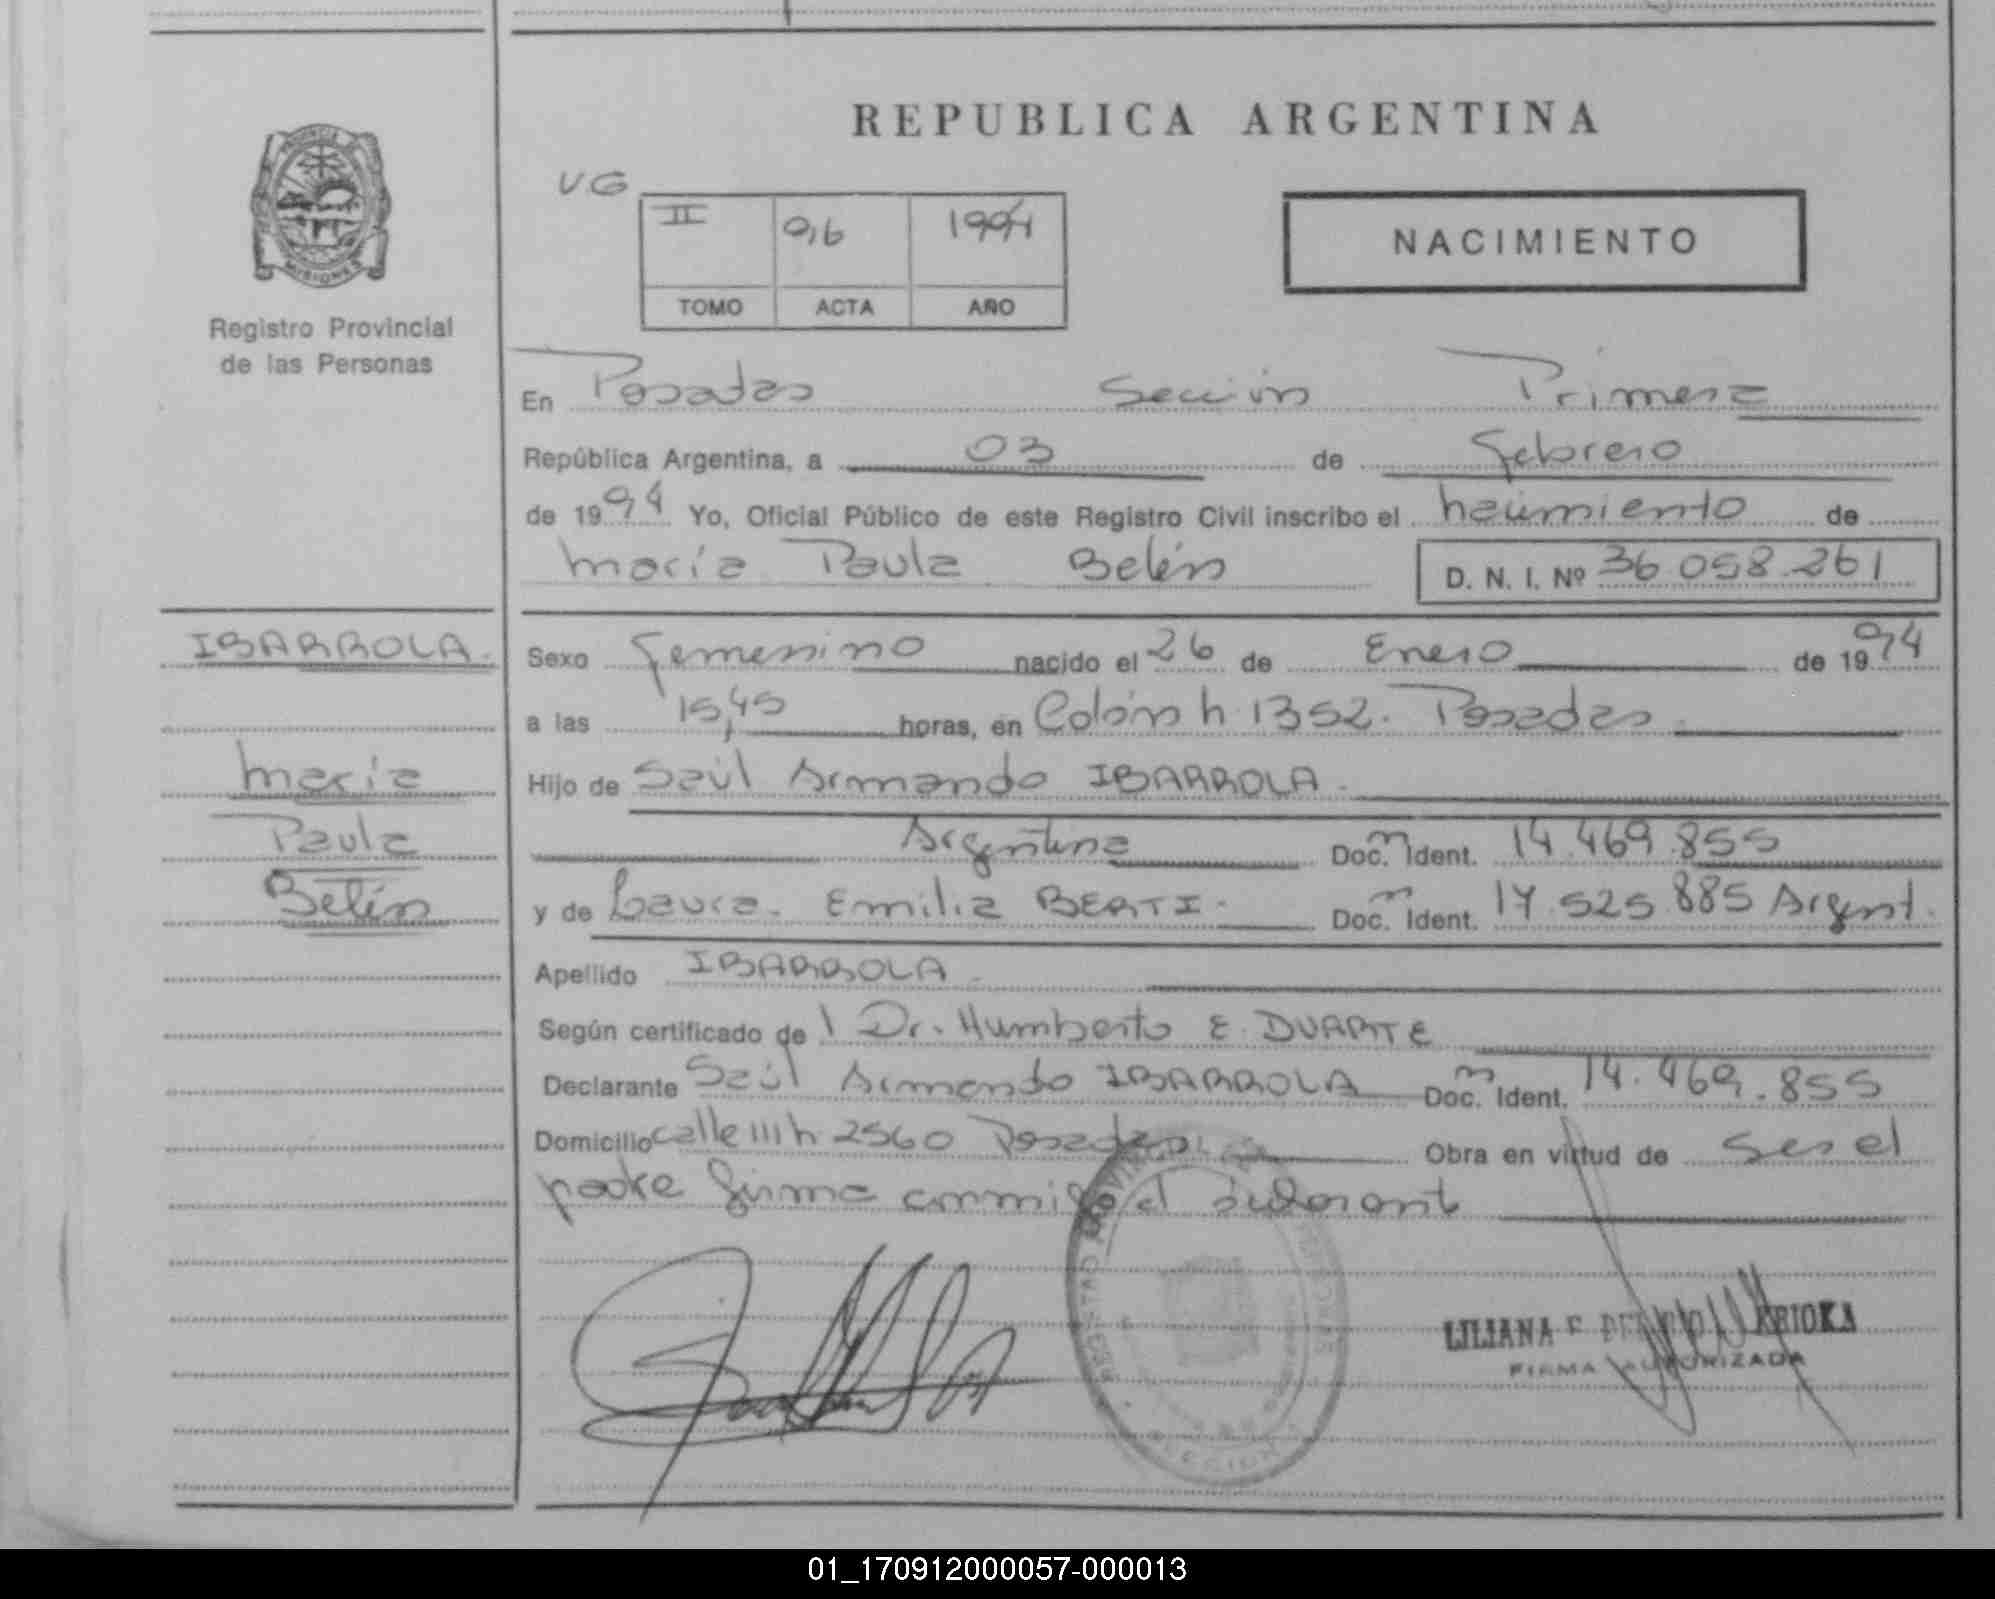 REPUBLICA ARGENTINA
PROVINCIA DE
MISIONES
Registro Provincial
de las Personas
VG
II 96 1994
TOMO ACTA AÑO
NACIMIENTO
En Posadas Sección Primera
República Argentina, a 03 de Febrero
de 1994 Yo, Oficial Público de este Registro Civil inscribo el nacimiento de
María Paula Belén D. N. I. Nº 36.058.261
IBARROLA.
María
Paula
Belén
Sexo Femenino nacido el 26 de Enero de 1994
a las 15,45 horas, en Colón n 1352. Posadas.
Hijo de Saúl Armando IBARROLA.
Argentina Doc. m Ident. 14.469.855
y de Laura Emilia BERTI. Doc. m Ident. 17.525.885 Argent.
Apellido IBARROLA.
Según certificado de l Dr. Humberto E. DUARTE
Declarante Saúl Armando IBARROLA Doc. m Ident. 14.469.855
Domicilio calle 111 n 2560 Posadas Obra en virtud de ser el
padre firma conmigo el declarante
LILIANA F. ARIOKA
FIRMA AUTORIZADA
01_170912000057-000013